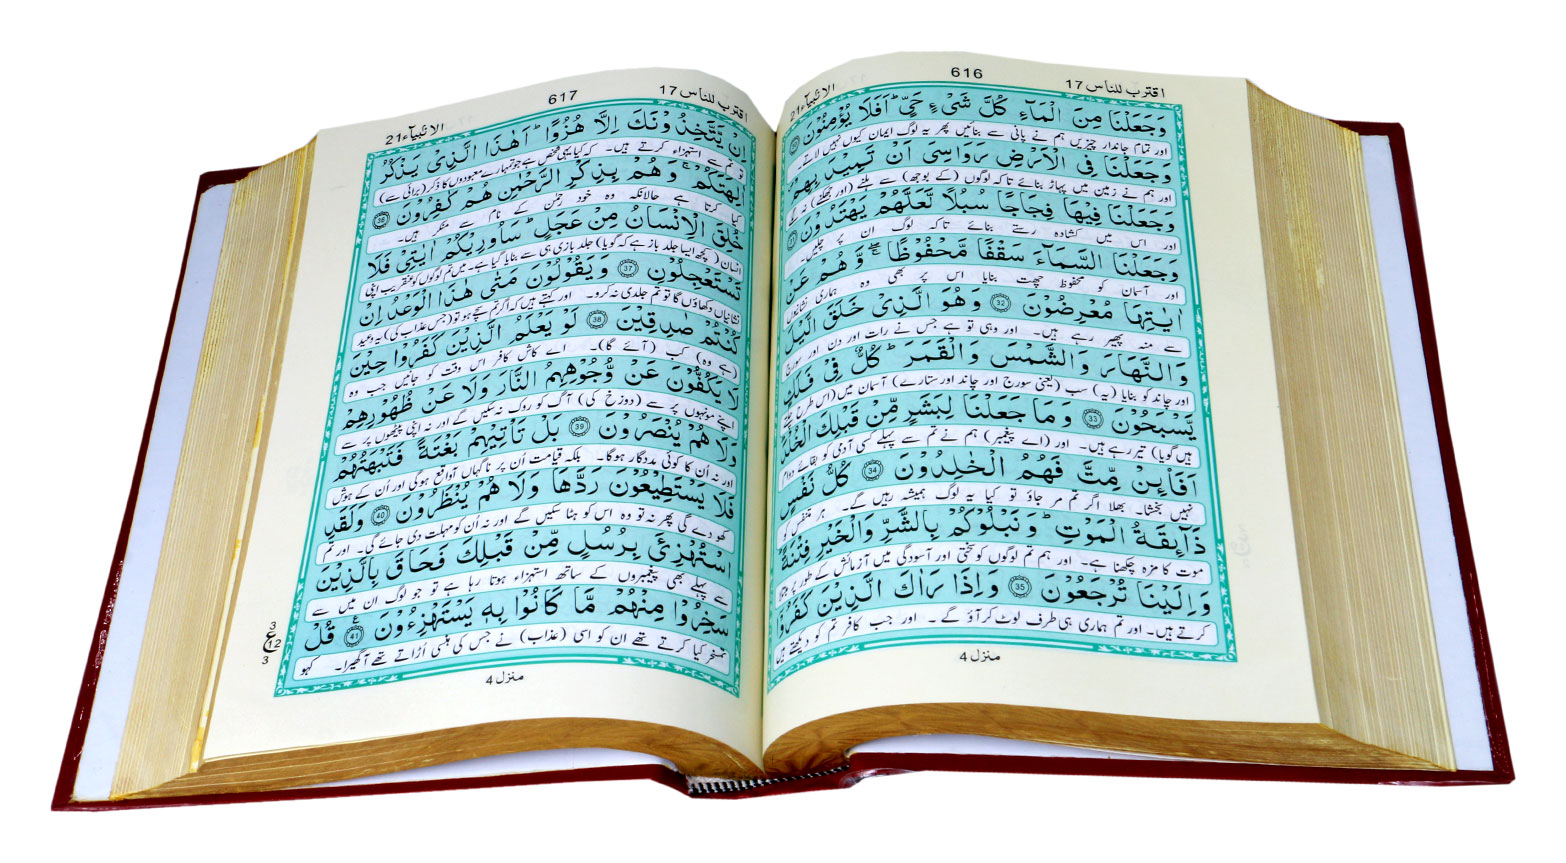 الانبیآء 21
616
اقترب للناس 17
وَجَعَلْنَا مِنَ الْمَآءِ كُلَّ شَیْءٍ حَیٍّ ؕ اَفَلَا یُؤْمِنُوْنَ 30
اور تمام جاندار چیزیں ہم نے پانی سے بنائیں پھر یہ لوگ ایمان کیوں نہیں لاتے۔
وَجَعَلْنَا فِی الْاَرْضِ رَوَاسِیَ اَنْ تَمِیْدَ بِهِمْ
اور ہم نے زمین میں پہاڑ بنائے تاکہ لوگوں (کے بوجھ) سے ہلنے (اور جھکنے) نہ لگے
وَجَعَلْنَا فِیْهَا فِجَاجًا سُبُلًا لَّعَلَّهُمْ یَهْتَدُوْنَ 31
اور اس میں کشادہ رستے بنائے تاکہ لوگ ان پر چلیں۔
وَجَعَلْنَا السَّمَآءَ سَقْفًا مَّحْفُوْظًا ۚۖ وَّهُمْ عَنْ
اور آسمان کو محفوظ چھت بنایا اس پر بھی وہ ہماری نشانیوں
اٰیٰتِهَا مُعْرِضُوْنَ 32 وَهُوَ الَّذِیْ خَلَقَ الَّیْلَ
سے منہ پھیر رہے ہیں۔ اور وہی تو ہے جس نے رات اور دن اور سورج
وَالنَّهَارَ وَالشَّمْسَ وَالْقَمَرَ ؕ كُلٌّ فِیْ فَلَكٍ
اور چاند کو بنایا (یہ) سب (یعنی سورج اور چاند اور ستارے) آسمان میں (اس طرح چلتے
یَّسْبَحُوْنَ 33 وَمَا جَعَلْنَا لِبَشَرٍ مِّنْ قَبْلِكَ الْخُلْدَ
ہیں گویا) تیر رہے ہیں۔ اور (اے پیغمبر) ہم نے تم سے پہلے کسی آدمی کو بقائے دوام
اَفَا۟ئِنْ مِّتَّ فَهُمُ الْخٰلِدُوْنَ 34 كُلُّ نَفْسٍ
نہیں بخشا۔ بھلا اگر تم مر جاؤ تو کیا یہ لوگ ہمیشہ رہیں گے۔ ہر متنفس کو
ذَآئِقَةُ الْمَوْتِ ؕ وَنَبْلُوْكُمْ بِالشَّرِّ وَالْخَیْرِ فِتْنَةً ؕ
موت کا مزہ چکھنا ہے۔ اور ہم تم لوگوں کو سختی اور آسودگی میں آزمائش کے طور پر مبتلا
وَاِلَیْنَا تُرْجَعُوْنَ 35 وَاِذَا رَاٰكَ الَّذِیْنَ كَفَرُوْۤا
کرتے ہیں۔ اور تم ہماری ہی طرف لوٹ کر آؤ گے۔ اور جب کافر تم کو دیکھتے ہیں
منزل 4
الانبیآء 21
617
اقترب للناس 17
اِنْ یَّتَّخِذُوْنَكَ اِلَّا هُزُوًا ؕ اَهٰذَا الَّذِیْ یَذْكُرُ
تو تم سے استہزاء کرتے ہیں۔ کہ کیا یہی شخص ہے جو تمہارے معبودوں کا ذکر (برائی سے)
اٰلِهَتَكُمْ ۚ وَهُمْ بِذِكْرِ الرَّحْمٰنِ هُمْ كٰفِرُوْنَ 36
کیا کرتا ہے حالانکہ وہ خود رحمٰن کے نام سے منکر ہیں۔
خُلِقَ الْاِنْسَانُ مِنْ عَجَلٍ ؕ سَاُورِیْكُمْ اٰیٰتِیْ فَلَا
انسان (کچھ ایسا جلد باز ہے کہ گویا) جلد بازی ہی سے بنایا گیا ہے۔ میں تم لوگوں کو عنقریب اپنی
تَسْتَعْجِلُوْنِ 37 وَیَقُوْلُوْنَ مَتٰی هٰذَا الْوَعْدُ اِنْ
نشانیاں دکھاؤں گا تو تم جلدی نہ کرو۔ اور کہتے ہیں کہ اگر تم سچے ہو تو (جس عذاب کی) یہ وعید
كُنْتُمْ صٰدِقِیْنَ 38 لَوْ یَعْلَمُ الَّذِیْنَ كَفَرُوْا حِیْنَ
(ہے وہ) کب (آئے گا)۔ اے کاش کافر اس وقت کو جانیں جب وہ
لَا یَكُفُّوْنَ عَنْ وُّجُوْهِهِمُ النَّارَ وَلَا عَنْ ظُهُوْرِهِمْ
اپنے مونہوں پر سے (دوزخ کی) آگ کو روک نہ سکیں گے اور نہ اپنی پیٹھوں پر سے
وَلَا هُمْ یُنْصَرُوْنَ 39 بَلْ تَاْتِیْهِمْ بَغْتَةً فَتَبْهَتُهُمْ
اور نہ اُن کا کوئی مددگار ہوگا۔ بلکہ قیامت اُن پر ناگہاں آ واقع ہوگی اور اُن کے ہوش
فَلَا یَسْتَطِیْعُوْنَ رَدَّهَا وَلَا هُمْ یُنْظَرُوْنَ 40 وَلَقَدِ
کھو دے گی پھر نہ تو وہ اس کو ہٹا سکیں گے اور نہ اُن کو مہلت دی جائے گی۔ اور تم
اسْتُهْزِئَ بِرُسُلٍ مِّنْ قَبْلِكَ فَحَاقَ بِالَّذِیْنَ
سے پہلے بھی پیغمبروں کے ساتھ استہزاء ہوتا رہا ہے تو جو لوگ ان میں سے
سَخِرُوْا مِنْهُمْ مَّا كَانُوْا بِهٖ یَسْتَهْزِءُوْنَ 41 قُلْ
تمسخر کیا کرتے تھے ان کو اسی (عذاب) نے جس کی ہنسی اُڑاتے تھے آ گھیرا۔ کہو
3
ع 12
3
منزل 4